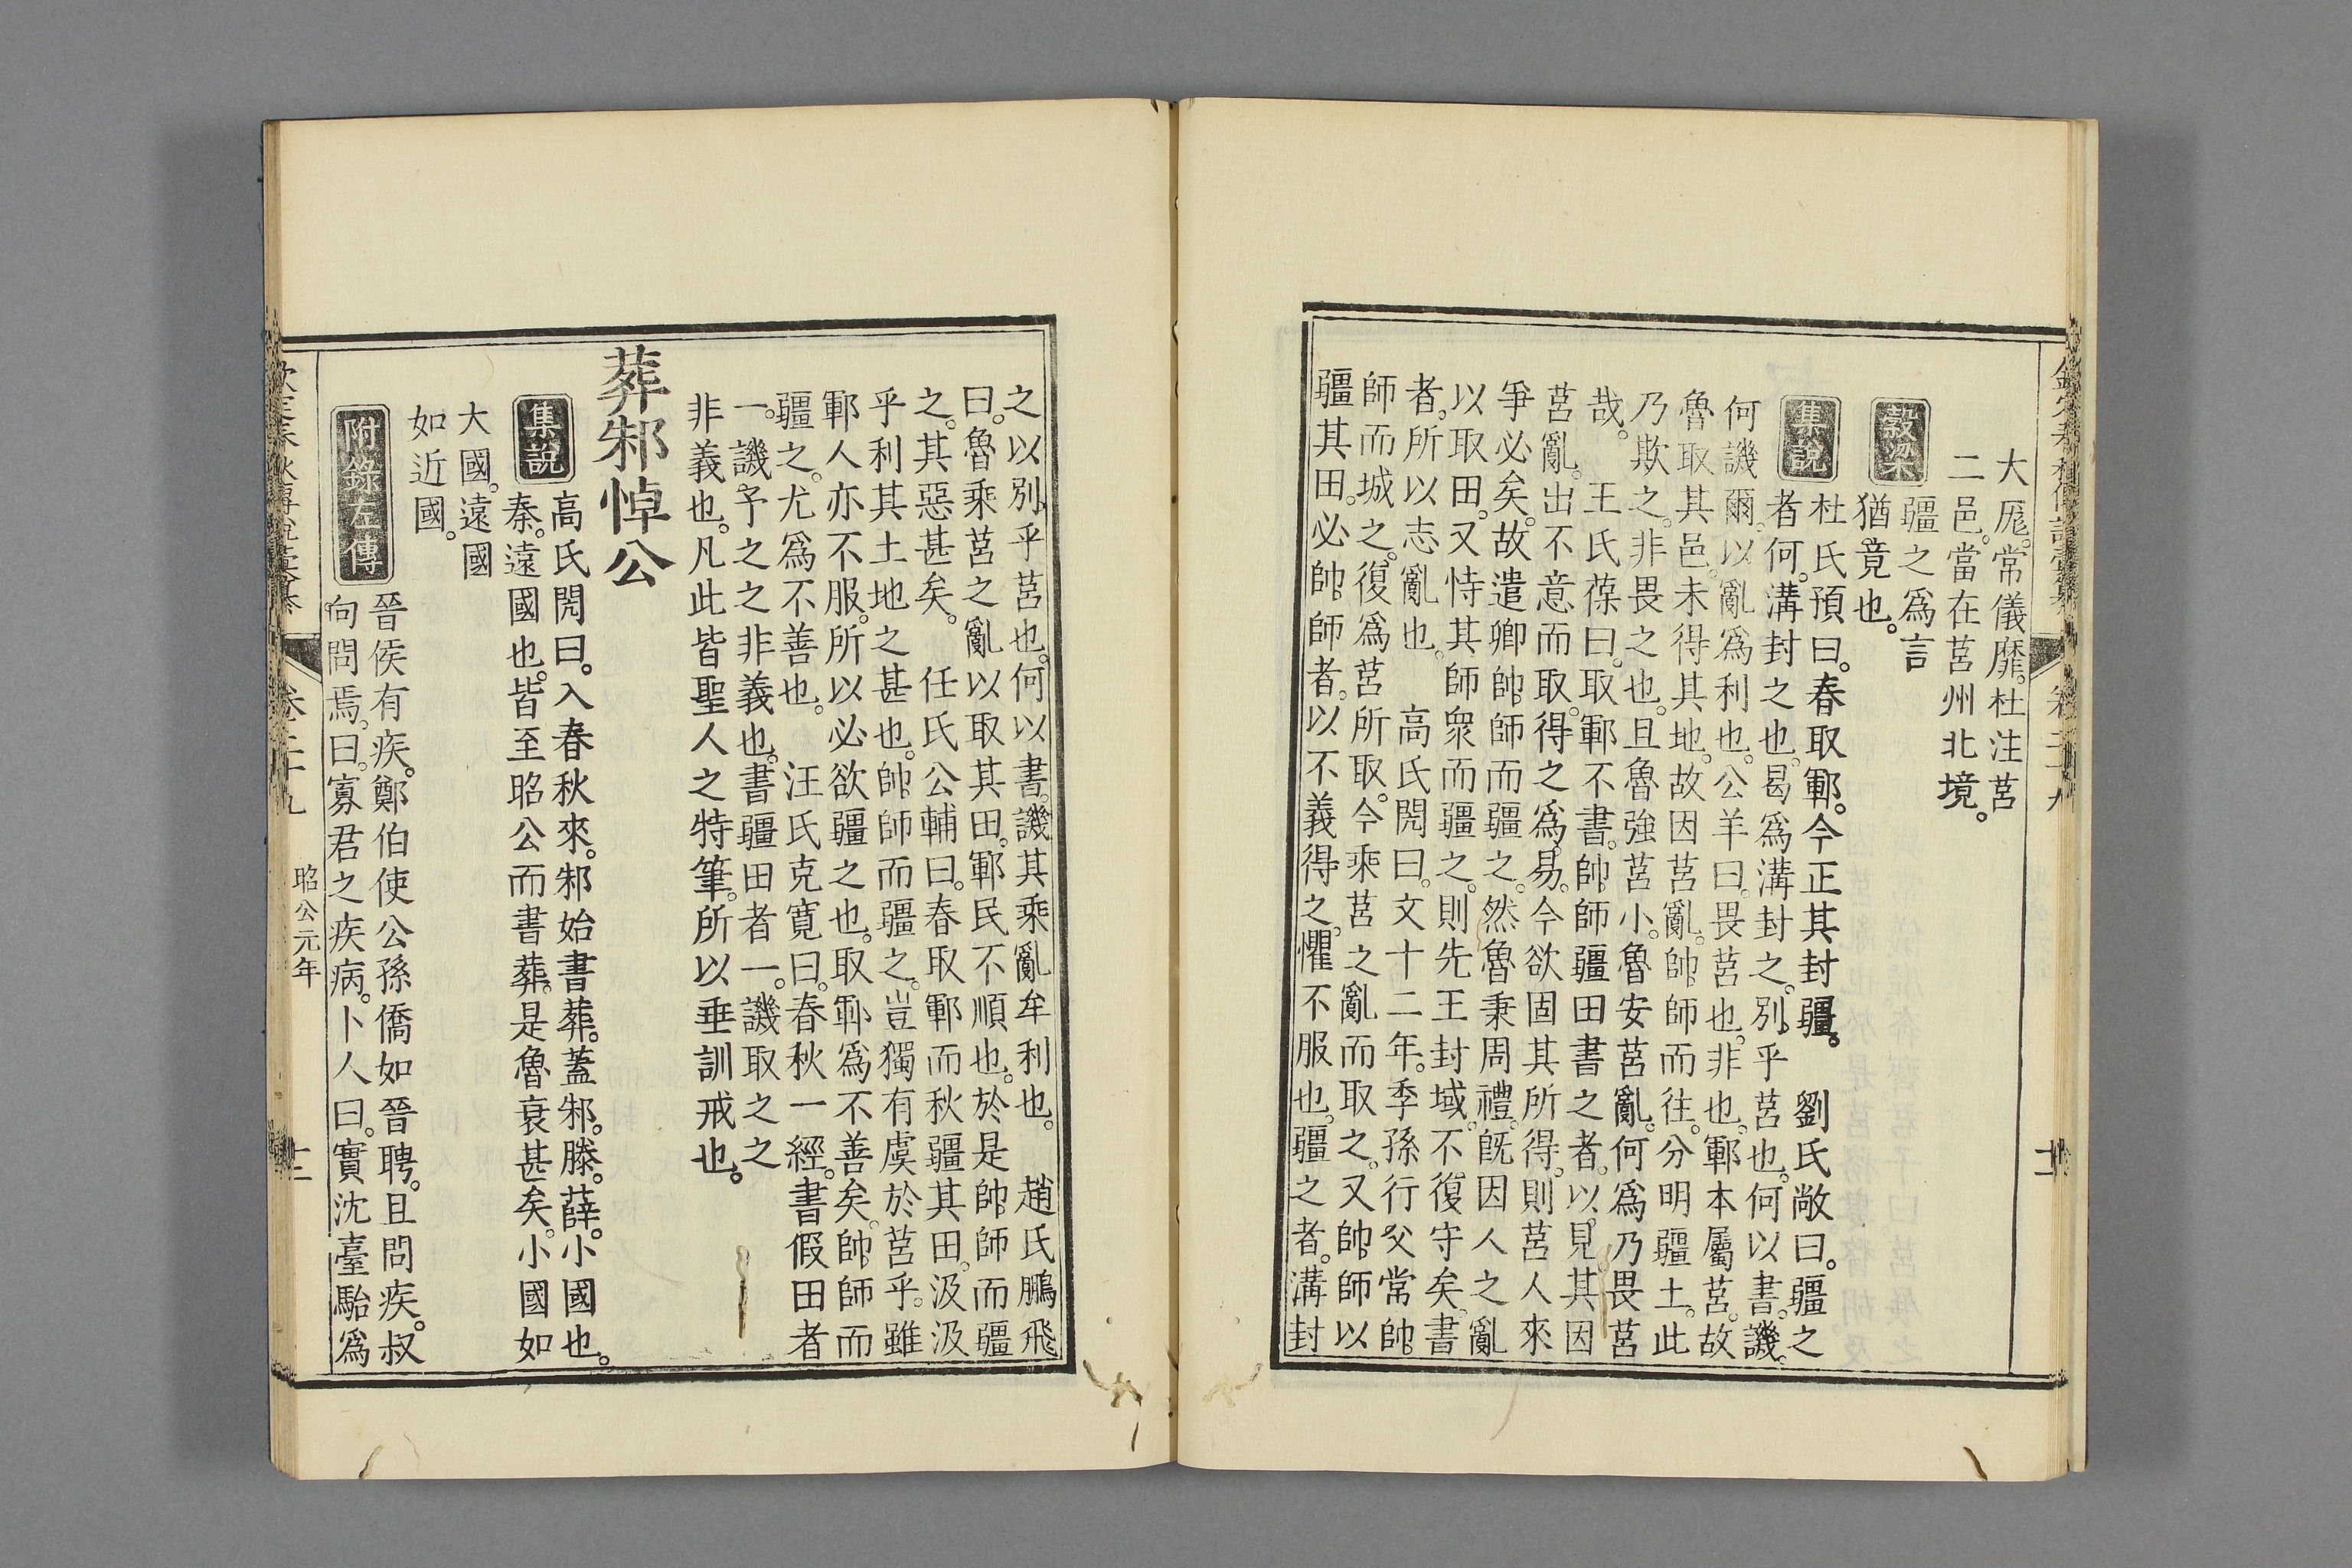 大厖。常儀靡。杜注莒
二邑。當在莒州北境。
穀梁
疆之爲言
猶竟也。
集說
杜氏預曰。春取鄆。今正其封疆。　劉氏敞曰。疆之
者何。溝封之也。曷爲溝封之。別乎莒也。何以書。譏。
何譏爾。以亂爲利也。公羊曰。畏莒也。非也。鄆本屬莒。故
魯取其邑。未得其地。故因莒亂。帥師而往。分明疆土。此
乃欺之。非畏之也。且魯強莒小。魯安莒亂。何爲乃畏莒
哉。　王氏葆曰。取鄆不書帥師。疆田書之者。以見其因
莒亂。出不意而取。得之爲易。今欲固其所得。則莒人來
爭必矣。故遣卿帥師而疆之。然魯秉周禮。旣因人之亂
以取田。又恃其師衆而疆之。則先王封域。不復守矣。書
者。所以志亂也。　高氏閌曰。文十二年。季孫行父常帥
師而城之。復爲莒所取。今乘莒之亂而取之。又帥師以
疆其田。必帥師者。以不義得之。懼不服也。疆之者。溝封
之以別乎莒也。何以書。譏其乘亂牟利也。　趙氏鵬飛
曰。魯乘莒之亂以取其田。鄆民不順也。於是帥師而疆
之。其惡甚矣。　任氏公輔曰。春取鄆而秋疆其田。汲汲
乎利其土地之甚也。帥師而疆之。豈獨有虞於莒乎。雖
鄆人亦不服。所以必欲疆之也。取鄆爲不善矣。帥師而
疆之。尤爲不善也。　汪氏克寬曰。春秋一經。書假田者
一。譏予之之非義也。書疆田者一。譏取之之
非義也。凡此皆聖人之特筆。所以垂訓戒也。
葬邾悼公
集說
高氏閌曰。入春秋來。邾始書葬。蓋邾。滕。薛。小國也。
秦。遠國也。皆至昭公而書葬。是魯衰甚矣。小國如
大國。遠國
如近國。
附錄左傳
晉侯有疾。鄭伯使公孫僑如晉聘。且問疾。叔
向問焉。曰。寡君之疾病。卜人曰。實沈臺駘爲
昭公元年